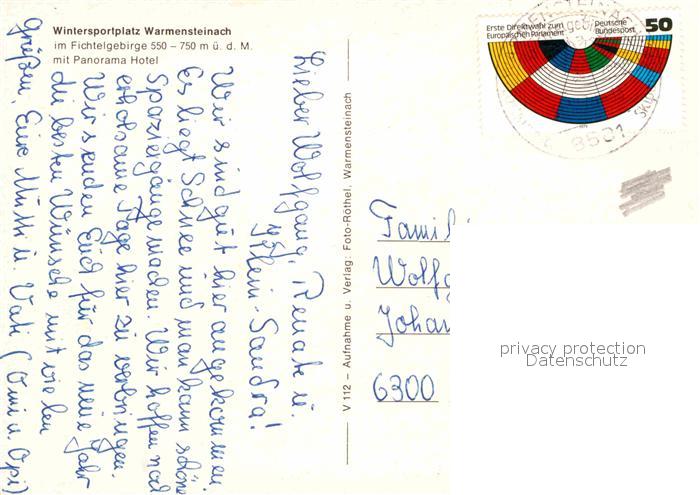 Wintersportplatz Warmensteinach
im Fichtelgebirge 550 – 750 m ü. d. M.
mit Panorama Hotel
Lieber Wolfgang, Renate u.
Klein-Sandra!
Wir sind gut hier angekommen
Es liegt Schnee und man kann schöne
Spaziergänge machen. Wir hoffen noch
erholsame Tage hier zu verbringen.
Wir senden Euch für das neue Jahr
die besten Wünsche mit vielen
Grüßen, Eure Mutti u. Vati (Omi u. Opi)
V 112 – Aufnahme u. Verlag: Foto-Röthel, Warmensteinach
Erste Direktwahl zum
Europäischen Parlament
Deutsche
Bundespost
50
8581
Famil
Wolfg
Johan
6300
privacy protection
Datenschutz